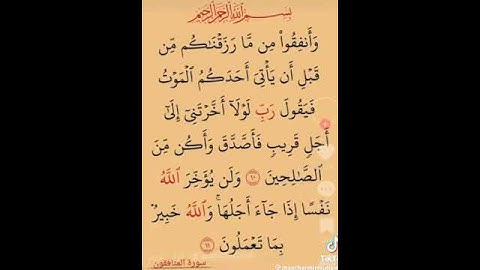 بِسْمِ اللَّهِ الرَّحْمَٰنِ الرَّحِيمِ
وَأَنفِقُوا۟ مِن مَّا رَزَقْنَـٰكُم مِّن
قَبْلِ أَن يَأْتِىَ أَحَدَكُمُ ٱلْمَوْتُ
فَيَقُولَ رَبِّ لَوْلَآ أَخَّرْتَنِىٓ إِلَىٰٓ
أَجَلٍ قَرِيبٍ فَأَصَّدَّقَ وَأَكُن مِّنَ
ٱلصَّـٰلِحِينَ ١٠ وَلَن يُؤَخِّرَ ٱللَّهُ
نَفْسًا إِذَا جَآءَ أَجَلُهَا ۚ وَٱللَّهُ خَبِيرٌۢ
بِمَا تَعْمَلُونَ ١١
سورة المنافقون
TikT